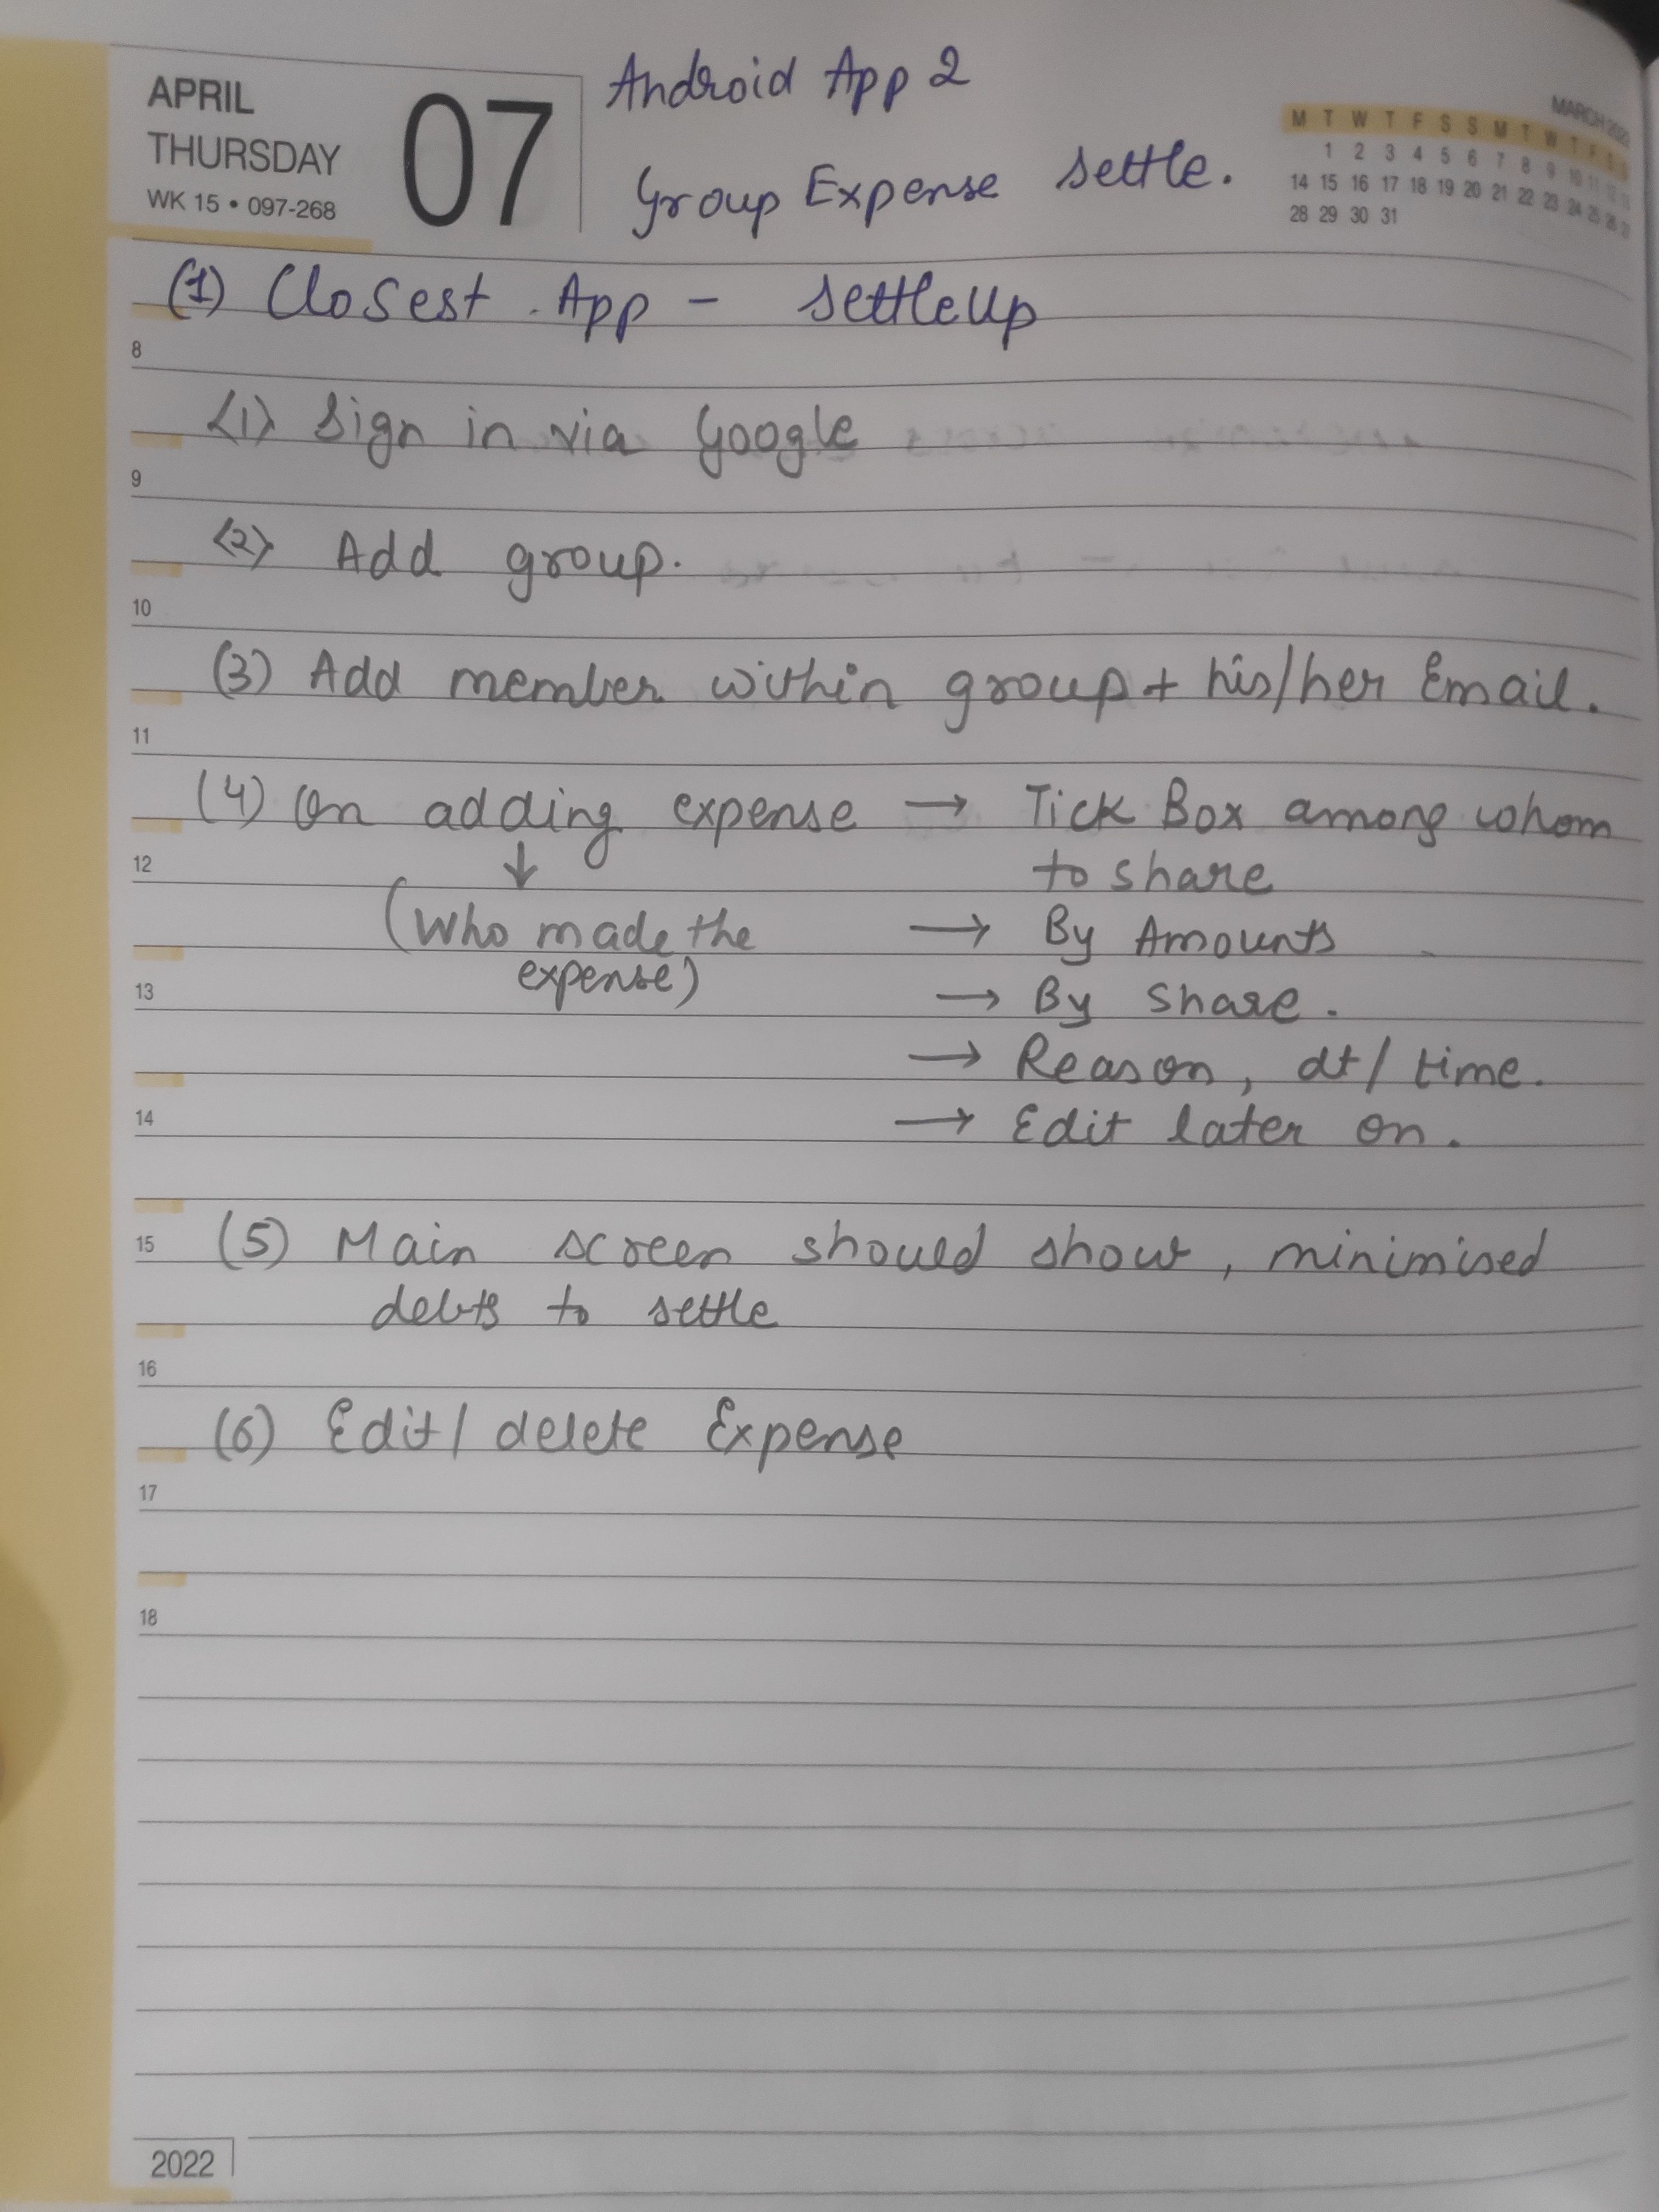 APRIL
THURSDAY
WK 15 • 097-268
07
Android App 2
Group Expense settle.
MARCH
M T W T F S S M T W T F S S
1 2 3 4 5 6 7 8 9 10 11 12 13
14 15 16 17 18 19 20 21 22 23 24 25 26 27
28 29 30 31
(1) Closest App - SettleUp
8
<1> Sign in via Google
9
<2> Add group.
10
(3) Add member within group + his/her Email.
11
(4) On adding expense → Tick Box among whom
12
↓ to share
(Who made the → By Amounts
expense)
13
→ By Share.
→ Reason, dt/time.
14
→ Edit later on.
15
(5) Main screen should show, minimised
debts to settle
16
(6) Edit/delete Expense
17
18
2022